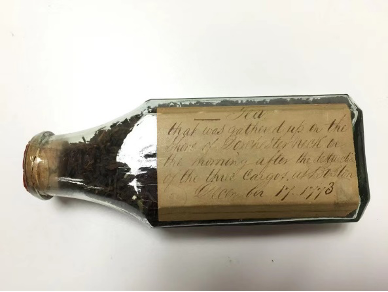 Tea
that was gathered up on the
shore of Dorchester Neck on
the morning after the destruction
of the three Cargos at Boston
December 17, 1773